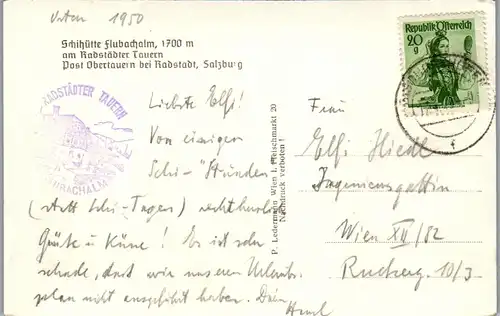 1950
Schihütte Flubachalm, 1700 m
am Radstädter Tauern
Post Obertauern bei Radstadt, Salzburg
RADSTÄDTER TAUERN
Republik Österreich
20
g
Liebste Elfi!
Von einigen
Schi-"Stunden
(statt Schi-Tagen)
Grüße u Küsse! Es ist sehr
schade, dass wir unseren Urlaubs-
plan nicht ausgeführt haben. Dein
P. Ledermann Wien I. Fleischmarkt 20
Nachdruck verboten!
Frau
Elfi Hiedl
Ingenieursgattin
Wien XII/82
Ruckerg. 10/3